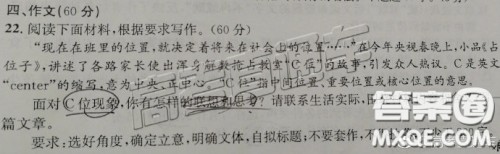 四、作文(60分)
22. 阅读下面材料，根据要求写作。(60分)
“现在在班里的位置，就决定着将来在社会上的位置……”在今年央视春晚上，小品《占
位子》，讲述了各路家长使出浑身解数抢占教室“C位”的故事，引发众人热议。C是英文
“center”的缩写，意为中央、正中心，“C位”指中间位置、重要位置或核心位置的意思。
面对C位现象，你有怎样的联想和思考？请联系生活实际，
篇文章。
要求：选好角度，确定立意，明确文体，自拟标题；不要套作，不
答案圈
MXQE.COM